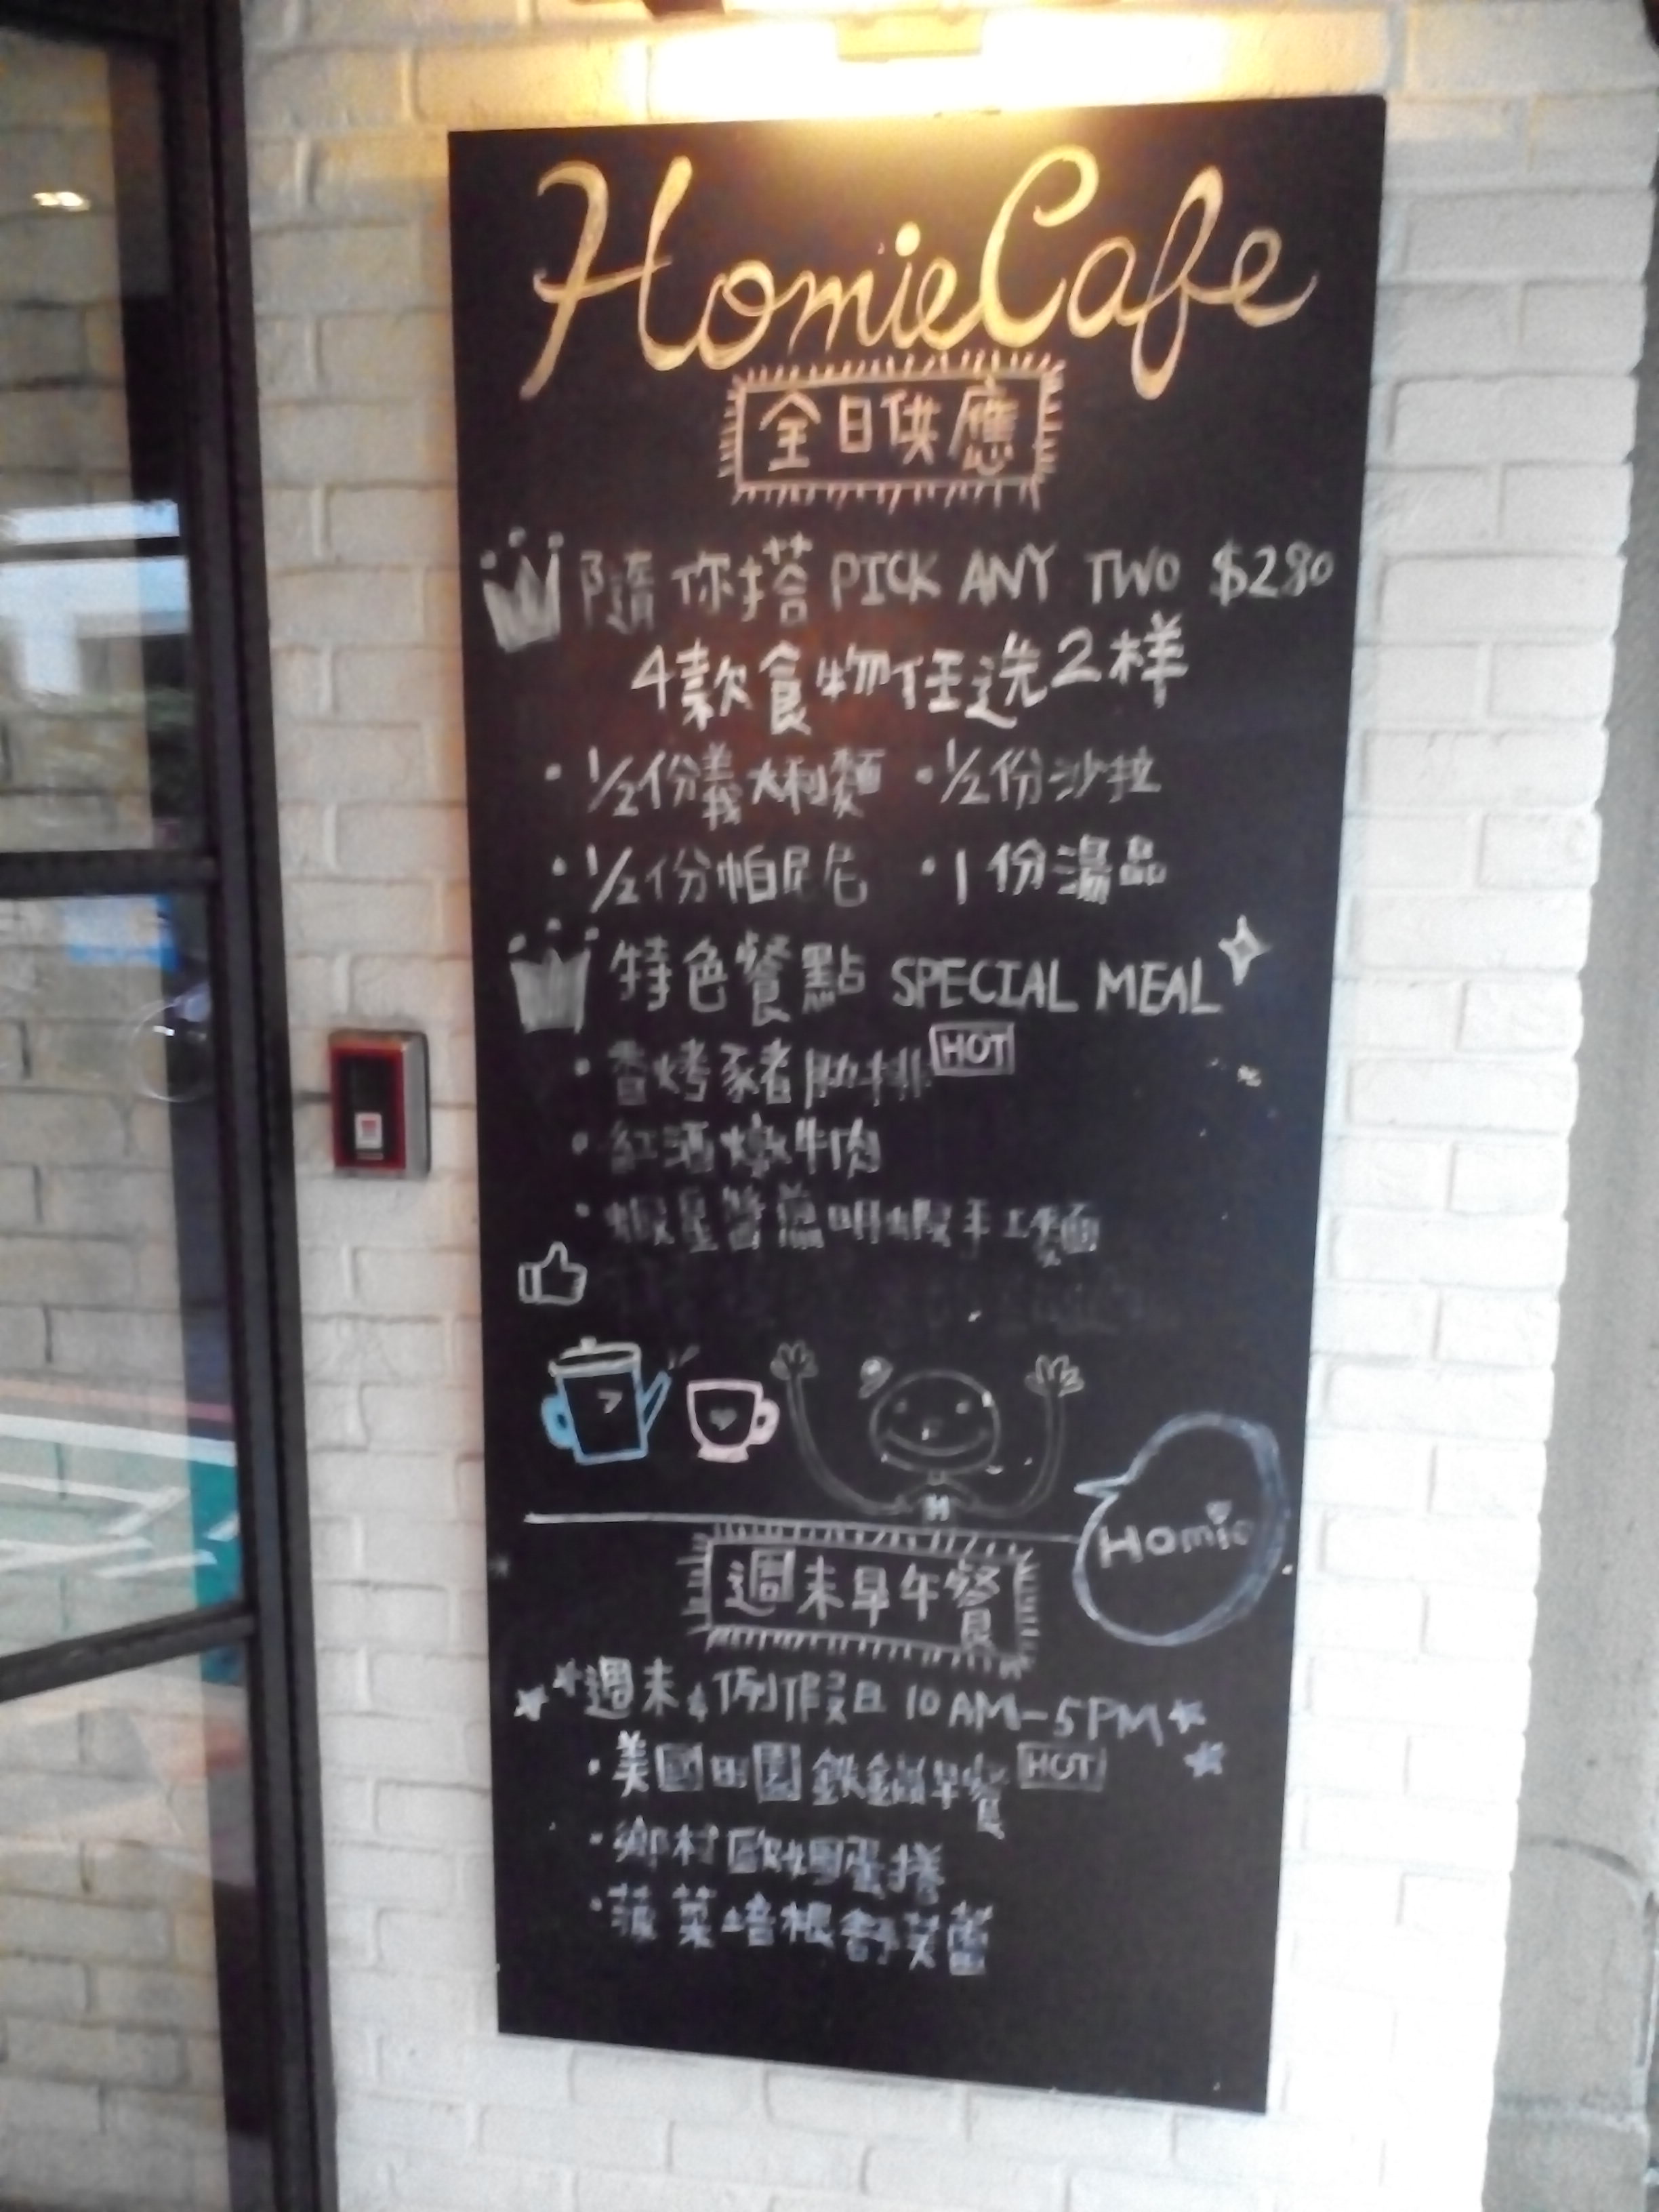 Homie Cafe
全日供應
隨你搭 PICK ANY TWO $280
4款食物任选2样
·1/2份義大利麵 ·1/2份沙拉
·1/2份帕尼尼 ·1份湯品
特色餐點 SPECIAL MEAL
·香烤豬肋排 HOT
·紅酒燉牛肉
·蝦星醬 明蝦手工麵
H
Homie
週末早午餐
週末&例假日 10AM-5PM
·美國田園鉄鍋早餐 HOT
·鄉村歐姆蛋捲
·菠菜培根舒芙蕾